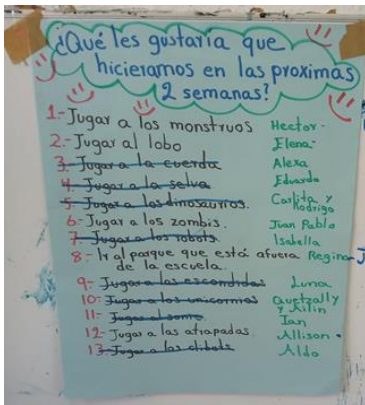 ¿Qué les gustaría que
hicieramos en las proximas
2 semanas?
1.- Jugar a los monstruos Hector.
2.- Jugar al lobo Elena
3.- Jugar a la cuerda Alexa
4.- Jugar a la selva Eduardo
5.- Jugar a los dinosaurios. Carlita y Rodrigo
6.- Jugar a los zombis. Juan Pablo
7.- Jugar a los robots Isabella
8.- Ir al parque que está afuera Regina
de la escuela.
9.- Jugar a las escondidas Luna
10.- Jugar a los unicornios Quetzally y Ailin
11.- Jugar al Ian
12.- Jugar a las atrapadas. Allison
13.- Jugar a los Aldo